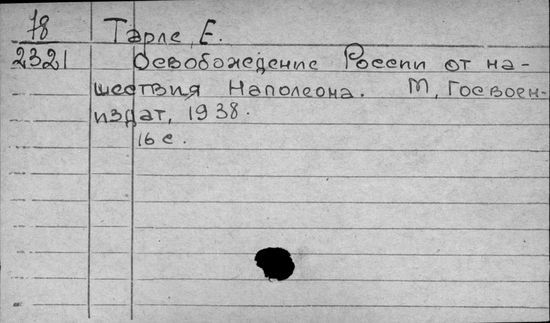 78 Тарле, Е.
2321 Освобождение России от на-
шествия Наполеона. М, Госвоен-
издат, 1938.
16 с.